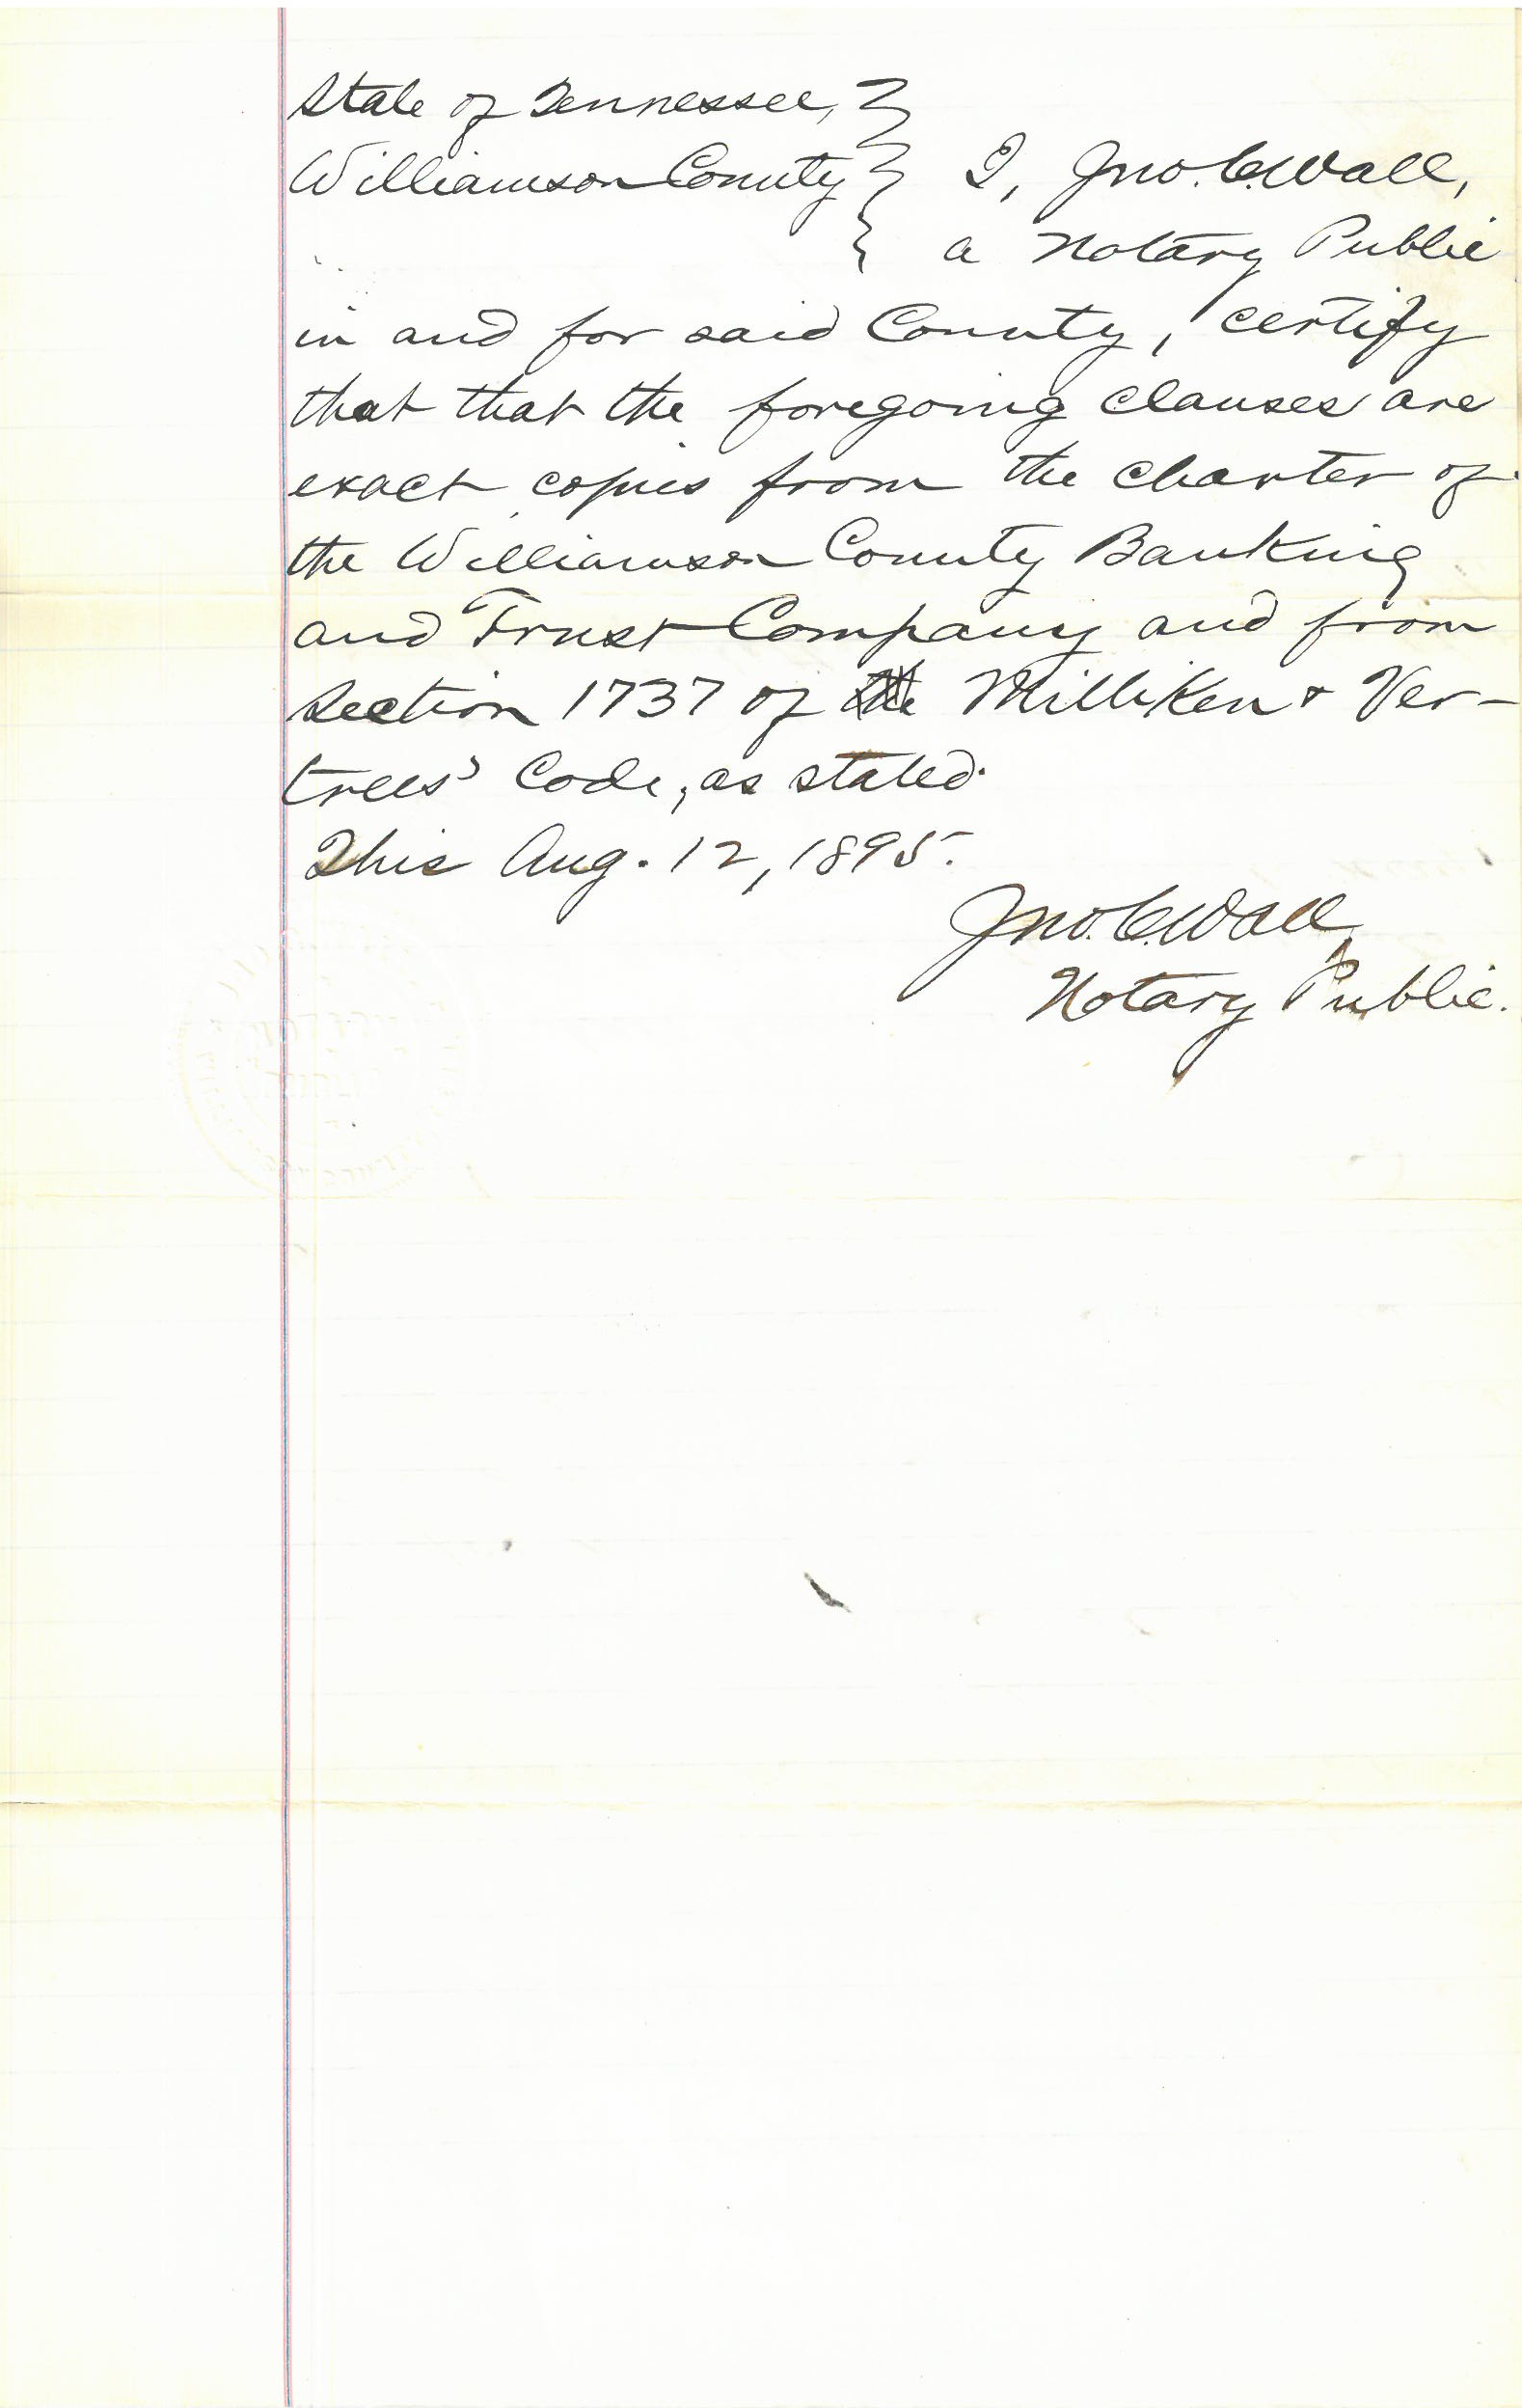 State of Tennessee, }
Williamson County } I, Jno. C. Wall,
} a Notary Public
in and for said County, certify
that that the foregoing clauses are
exact copies from the charter of
the Williamson County Banking
and Trust Company and from
section 1737 of the Milliken & Ver-
trees' Code, as stated.
This Aug. 12, 1895.
Jno. C. Wall,
Notary Public.